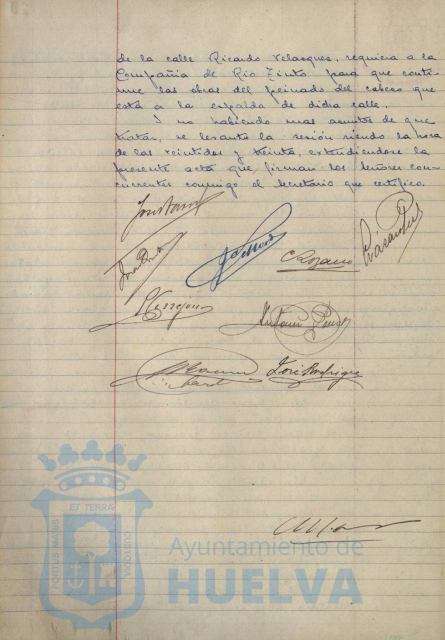 de la calle Ricardo Velasquez, requiera a la
Compañía de Rio Tinto para que conti-
nue las obras del peinado del cabezo que
está a la espalda de dicha calle.
Y no habiendo mas asuntos de que
tratar, se levanto la sesión siendo la hora
de las veintidos y treinta, extendiendose la
presente acta que firman los señores con-
currentes conmigo el Secretario que certifico.
C Lozano
Antonio
José Rodriguez
PORTUS MARIS
ET TERRÆ
CUSTODIA
Ayuntamiento de
HUELVA